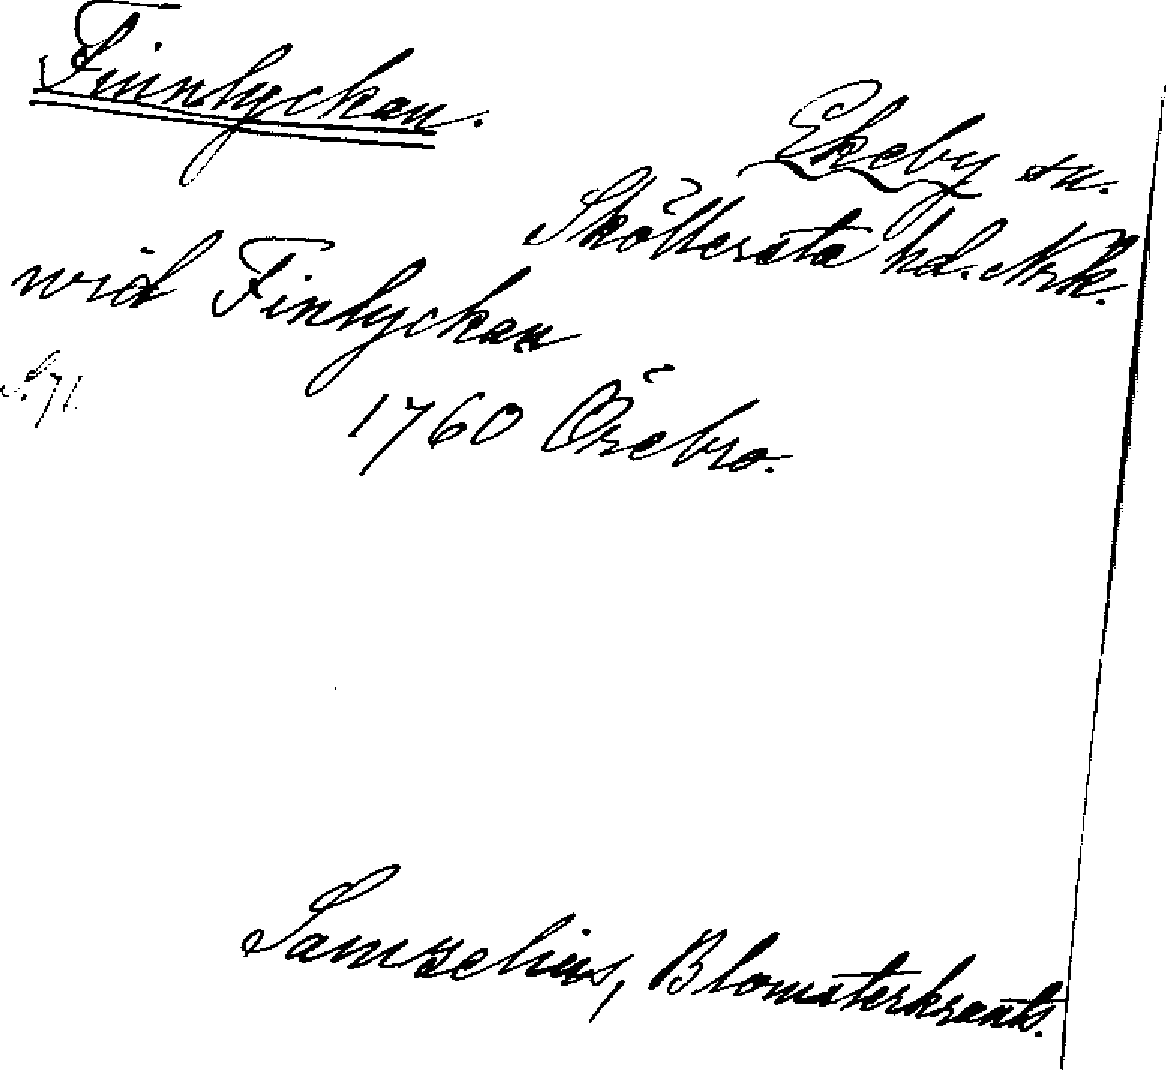 Finnlyckan.
Ekeby sn.
Sköllersta hd. Nrk.
wid Finlyckan
S. 71.
1760 Örebro.
Samzelius, Blomsterkrants.